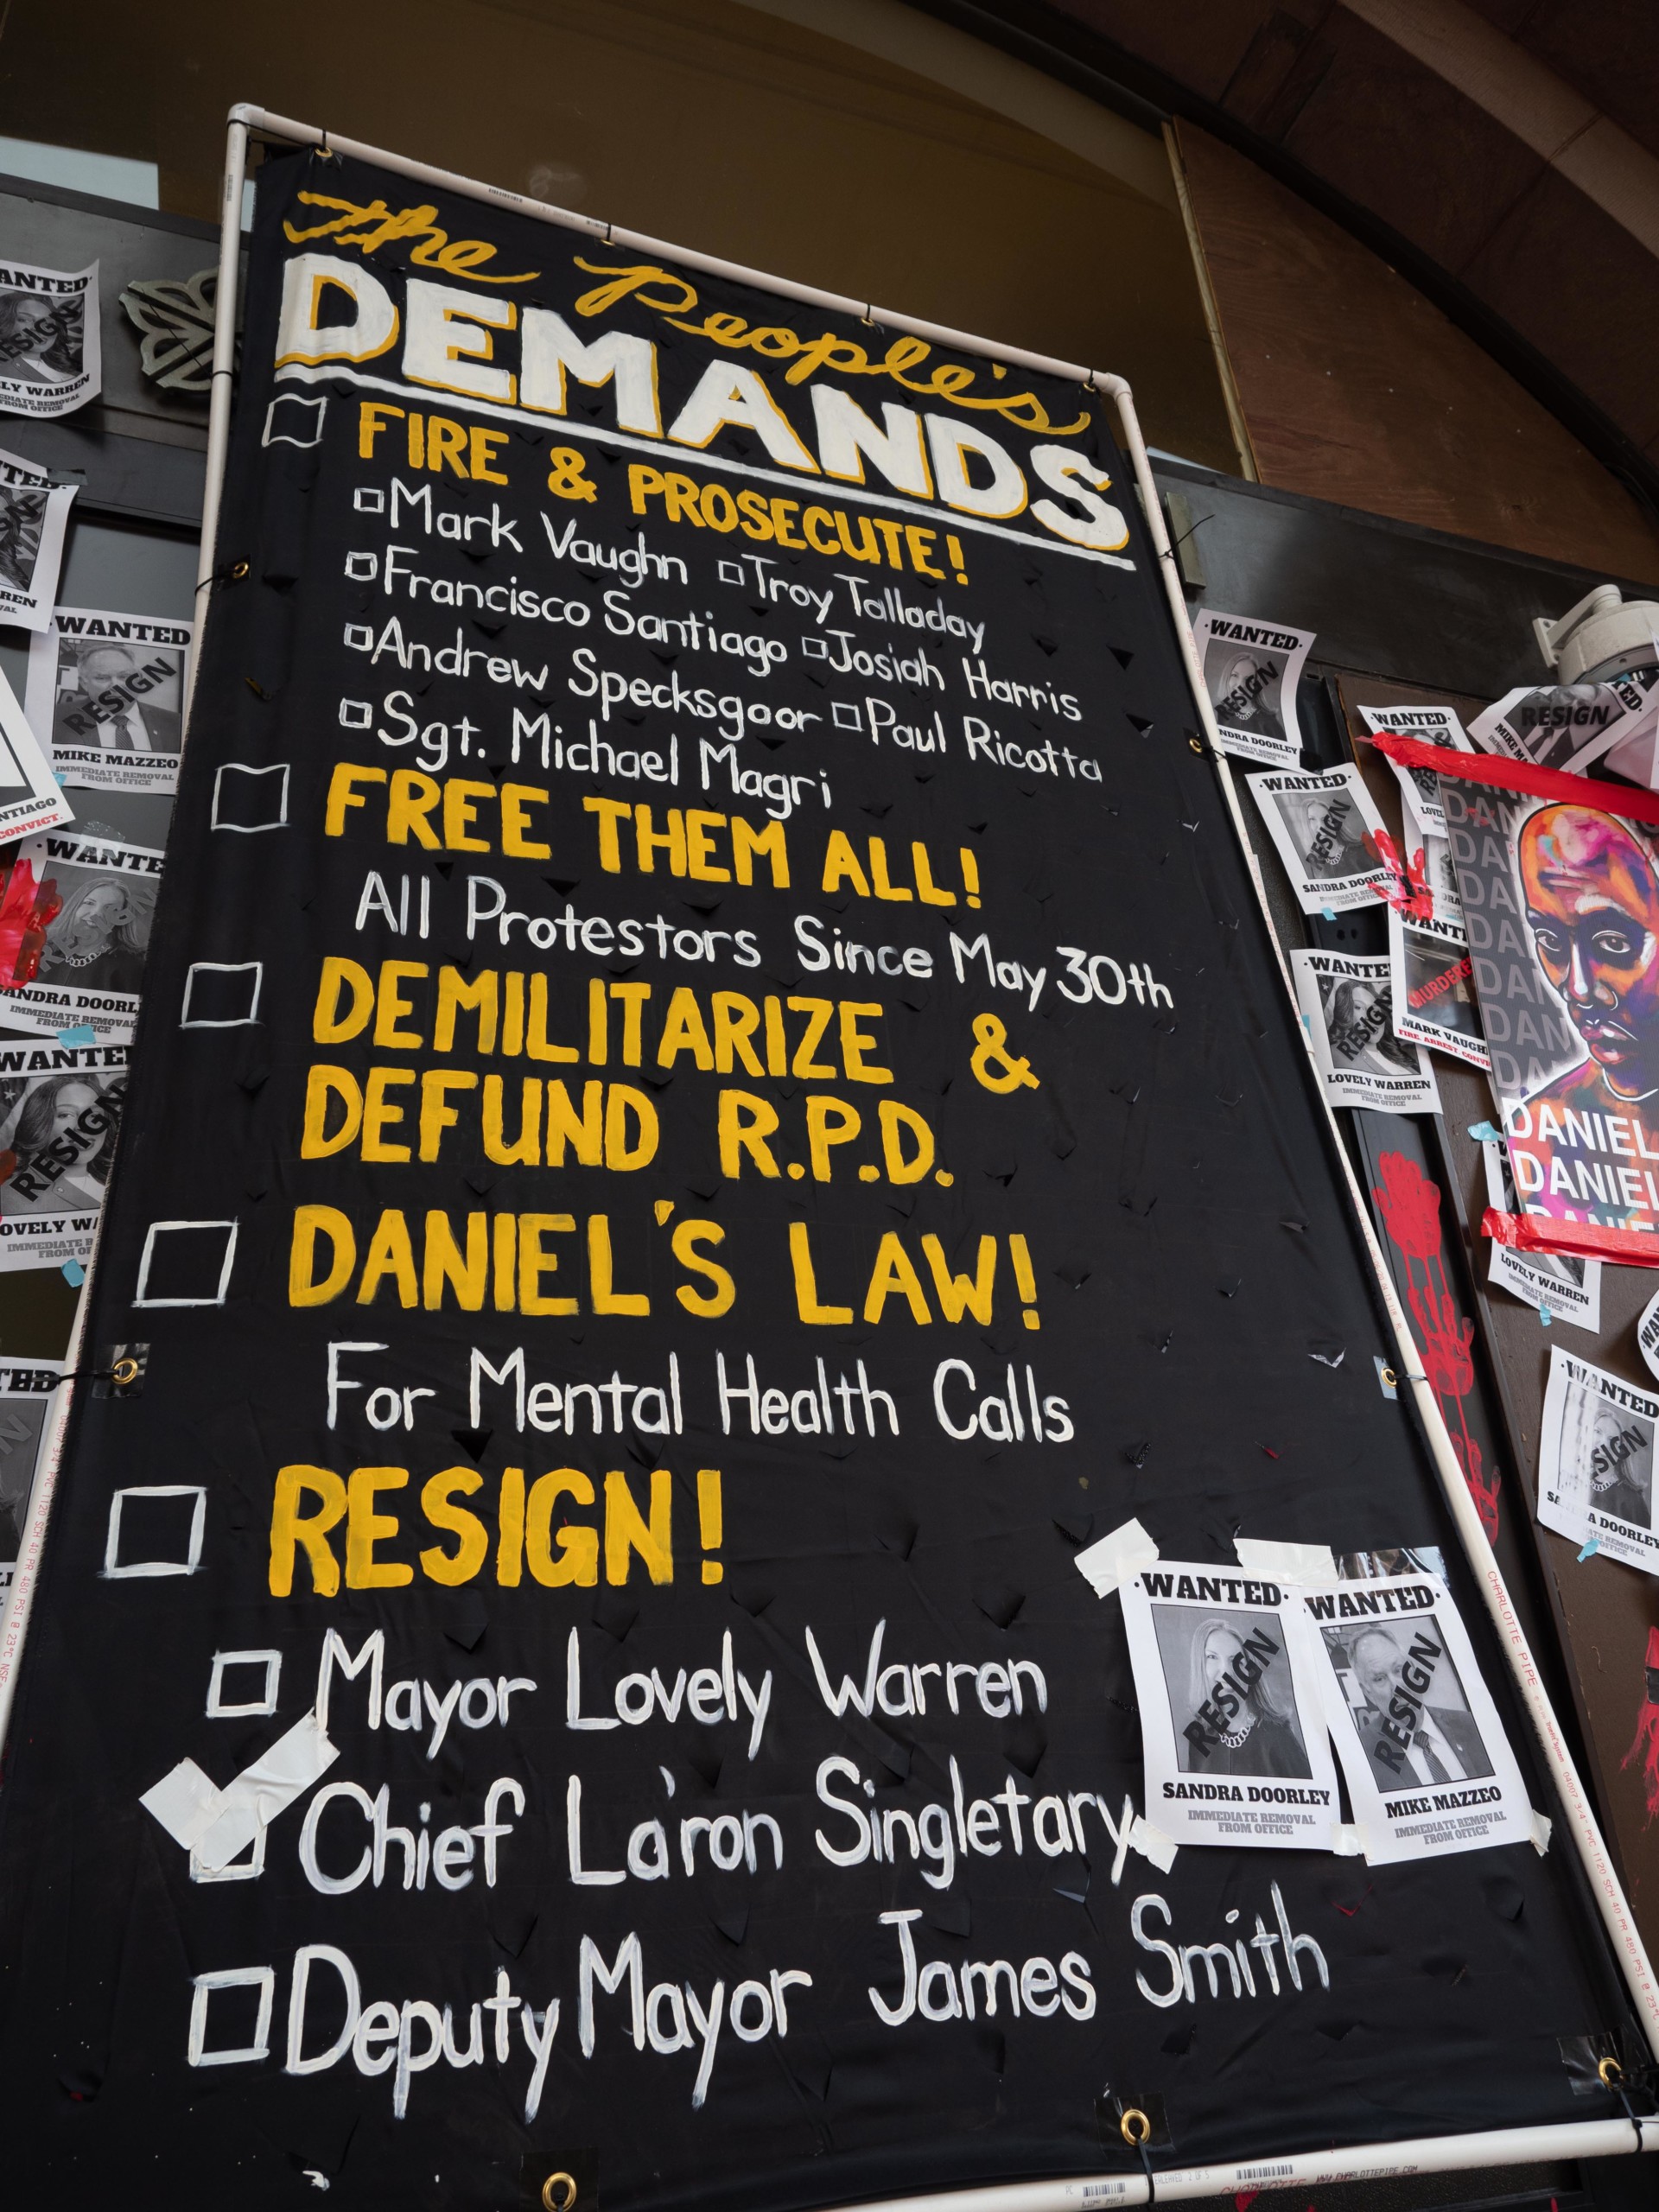 The People's
DEMANDS
FIRE & PROSECUTE!
Mark Vaughn Troy Talladay
Francisco Santiago Josiah Harris
Andrew Specksgoor Paul Ricotta
Sgt. Michael Magri
FREE THEM ALL!
All Protestors Since May 30th
DEMILITARIZE &
DEFUND R.P.D.
DANIEL'S LAW!
For Mental Health Calls
RESIGN!
Mayor Lovely Warren
Chief La'ron Singletary
Deputy Mayor James Smith
·WANTED·
RESIGN
SANDRA DOORLEY
IMMEDIATE REMOVAL
FROM OFFICE
·WANTED·
RESIGN
MIKE MAZZEO
IMMEDIATE REMOVAL
FROM OFFICE
WANTED
RESIGN
MIKE MAZZEO
IMMEDIATE REMOVAL
FROM OFFICE
WANTED
SANDRA DOORL
IMMEDIATE REMOVAL
FROM OFFICE
WANTED
RESIGN
OVELY WA
IMMEDIATE
FROM OF
ANTED
RESIGN
LY WARREN
EDIATE REMOVAL
FROM OFFICE
NTIAGO
CONVICT.
·WANTED·
RESIGN
NDRA DOORLEY
IMMEDIATE REMOVAL
FROM OFFICE
·WANTED·
RESIGN
SANDRA DOORLEY
IMMEDIATE REMOVAL
FROM OFFICE
WANTE
RESIGN
LOVELY WARREN
IMMEDIATE REMOVAL
FROM OFFICE
WANTED
RESIGN
WANT
MURDERE
MARK VAUGH
FIRE. ARREST. CONV
DANIEL
DANIEL
LOVELY WARREN
IMMEDIATE REMOVAL
FROM OFFICE
WANTED
SIGN
A DOORLEY
CHARLOTTE PIPE